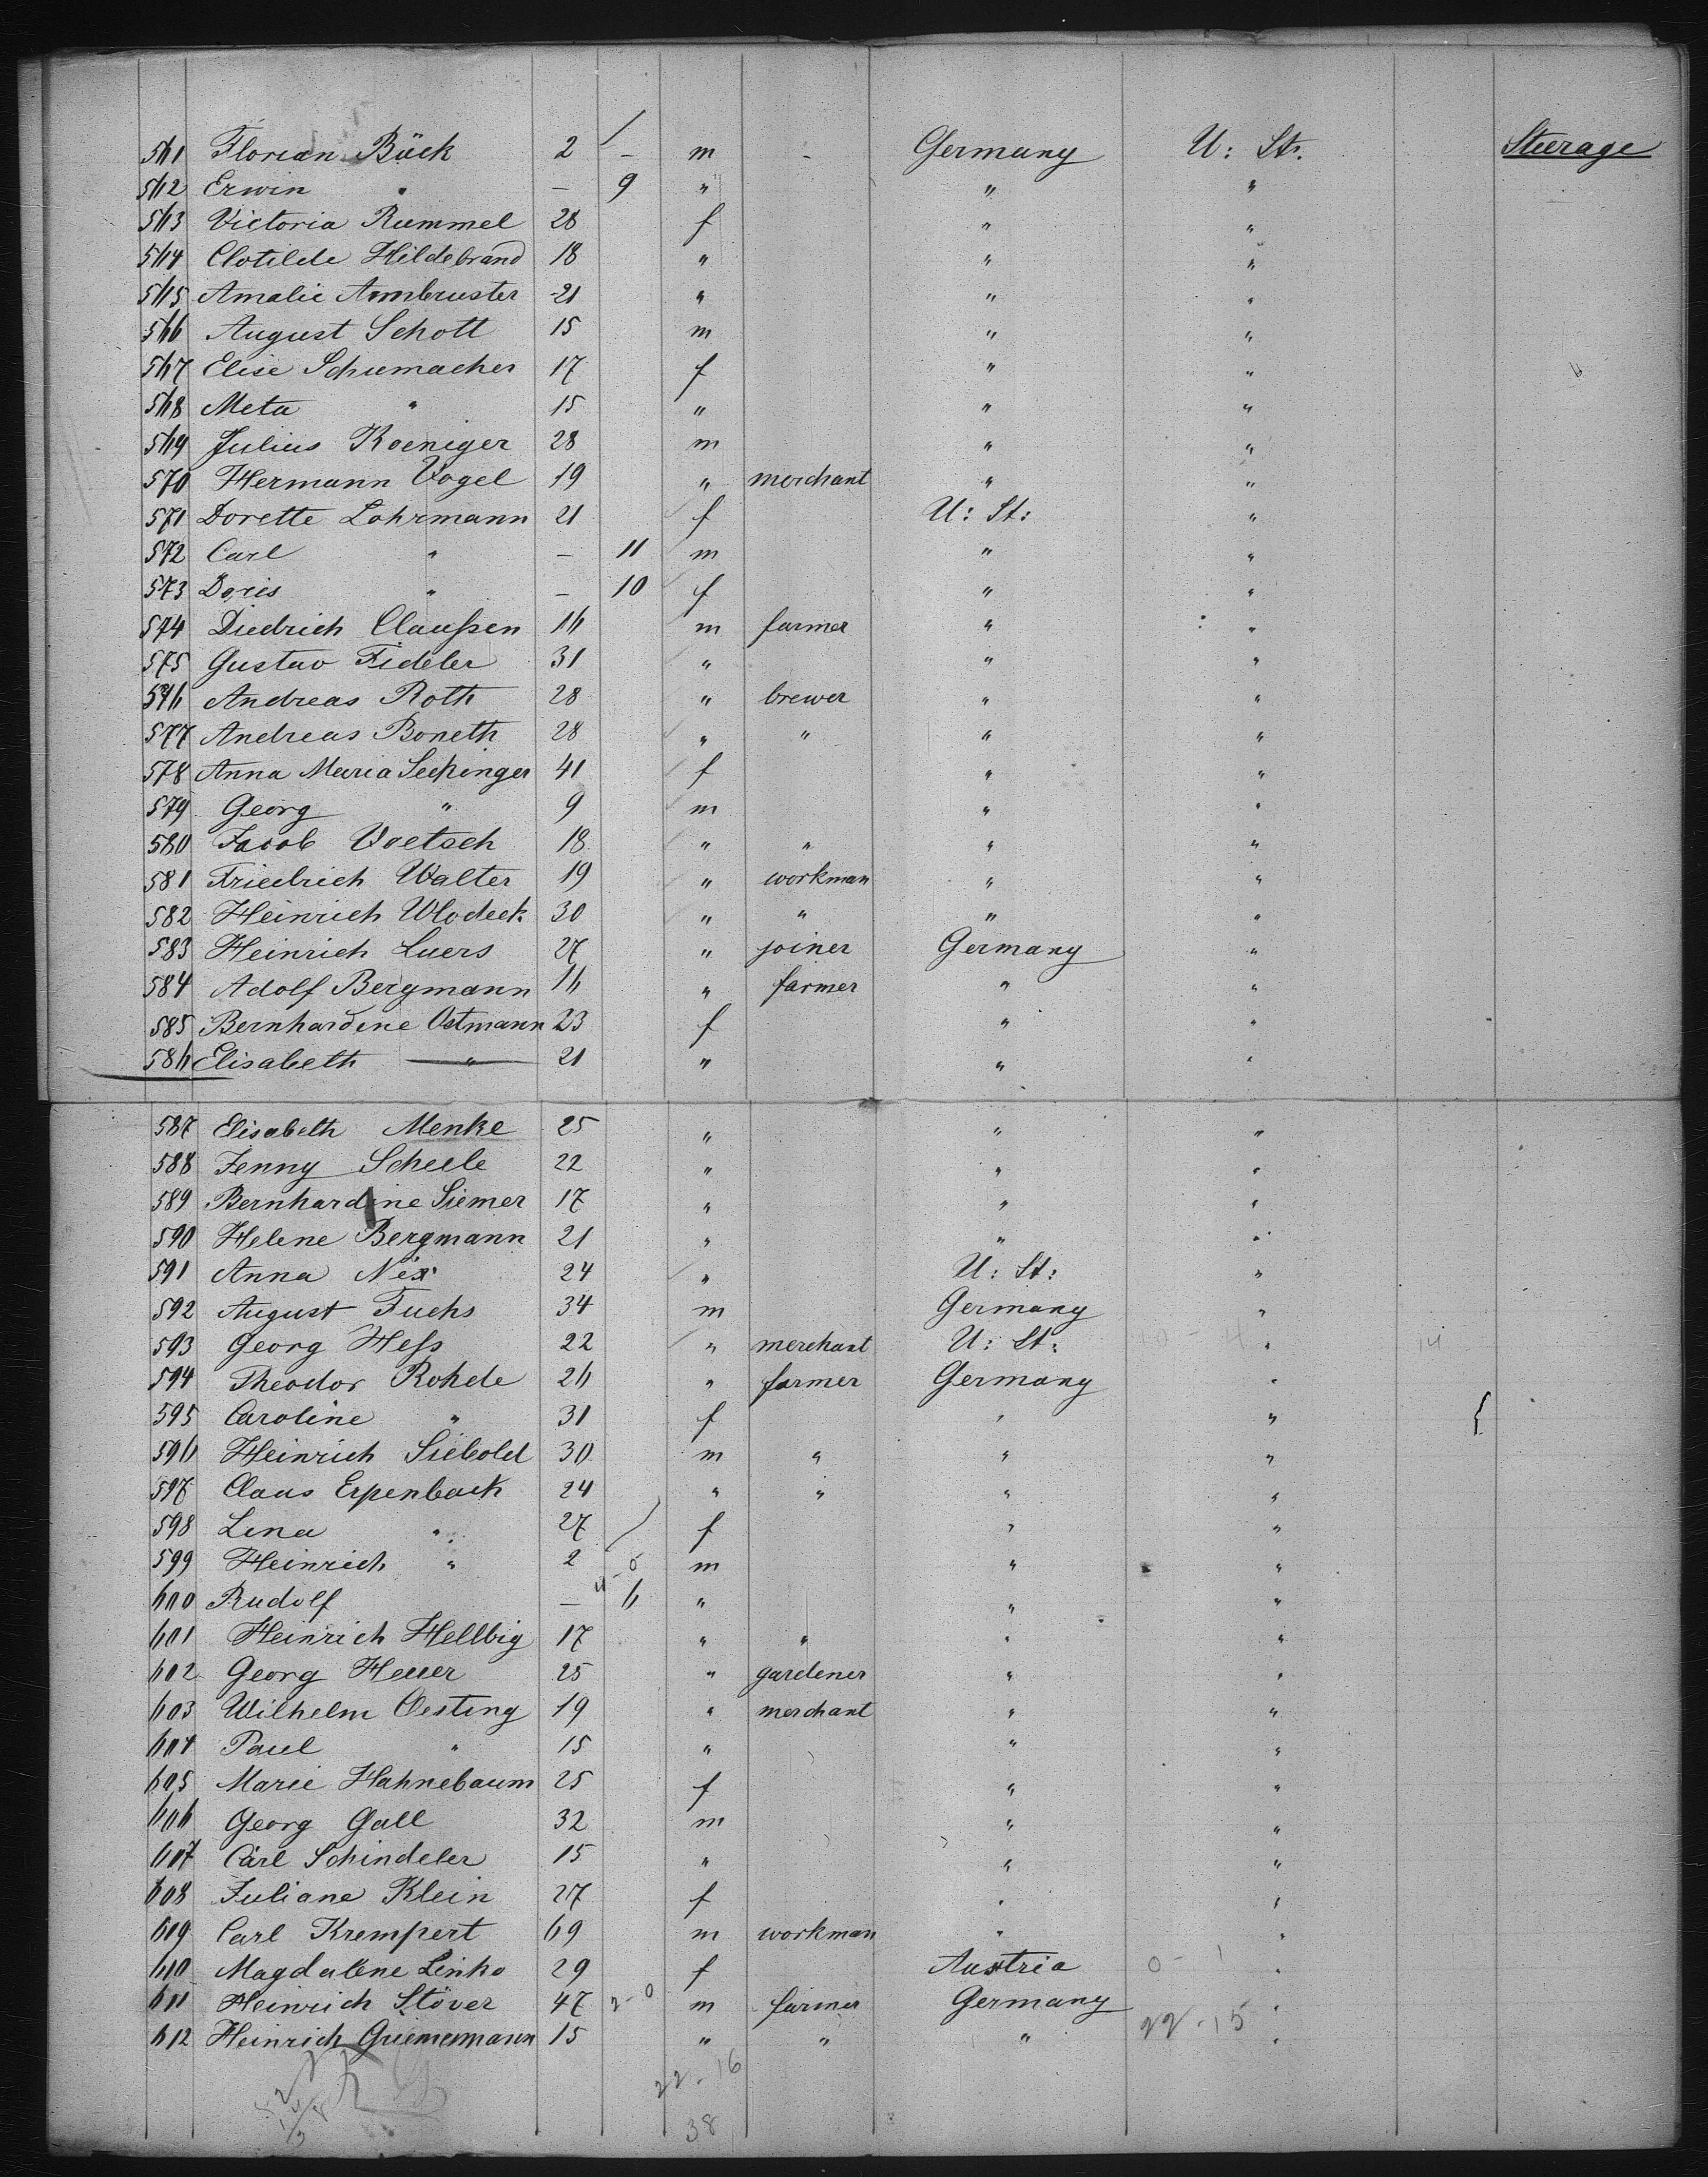 561 Florian Bück 2 - m - Germany U: St. Steerage
562 Erwin " - 9 " " "
563 Victoria Rummel 28 f " "
564 Clotilde Hildebrand 18 " " "
565 Amalie Armbruster 21 " " "
566 August Schott 15 m " "
567 Elise Schumacher 17 f " "
568 Meta " 15 " " "
569 Julius Koeniger 28 m " "
570 Hermann Vogel 19 " merchant " "
571 Dorette Lohrmann 21 f U: St: "
572 Carl " - 11 m " "
573 Doris " - 10 f " "
574 Diedrich Claußen 16 m farmer " "
575 Gustav Fideler 31 " " "
576 Andreas Roth 28 " brewer " "
577 Andreas Boneth 28 " " " "
578 Anna Maria Seckinger 41 f " "
579 Georg " 9 m " "
580 Jacob Voetsch 18 " " " "
581 Friedrich Walter 19 " workman " "
582 Heinrich Wlodeck 30 " " " "
583 Heinrich Luers 27 " joiner Germany "
584 Adolf Bergmann 16 " farmer " "
585 Bernhardine Ostmann 23 f " "
586 Elisabeth " 21 " " "
587 Elisabeth Menke 25 " " "
588 Jenny Scheele 22 " " "
589 Bernhardine Siemer 17 " " "
590 Helene Bergmann 21 " " "
591 Anna Nix 24 " U: St: "
592 August Fuchs 34 m Germany "
593 Georg Heß 22 " merchant U: St: " 14
594 Theodor Rohde 26 " farmer Germany "
595 Caroline " 31 f " "
596 Heinrich Siebold 30 m " " "
597 Claus Erpenbach 24 " " " "
598 Lina " 27 f " "
599 Heinrich " 2 m " "
600 Rudolf - 6 " " "
601 Heinrich Hellbig 17 " " " "
602 Georg Heuer 25 " gardener " "
603 Wilhelm Oesting 19 " merchant " "
604 Paul " 15 " " "
605 Marie Hahnebaum 25 f " "
606 Georg Gall 32 m " "
607 Carl Schindeler 15 " " "
608 Juliane Klein 27 f " "
609 Carl Krempert 69 m workman " "
610 Magdalene Linho 29 f Austria 0 - 1 "
611 Heinrich Stöver 47 2-0 m farmer Germany "
612 Heinrich Griemermann 15 " " " 22-15 "
22-16
38